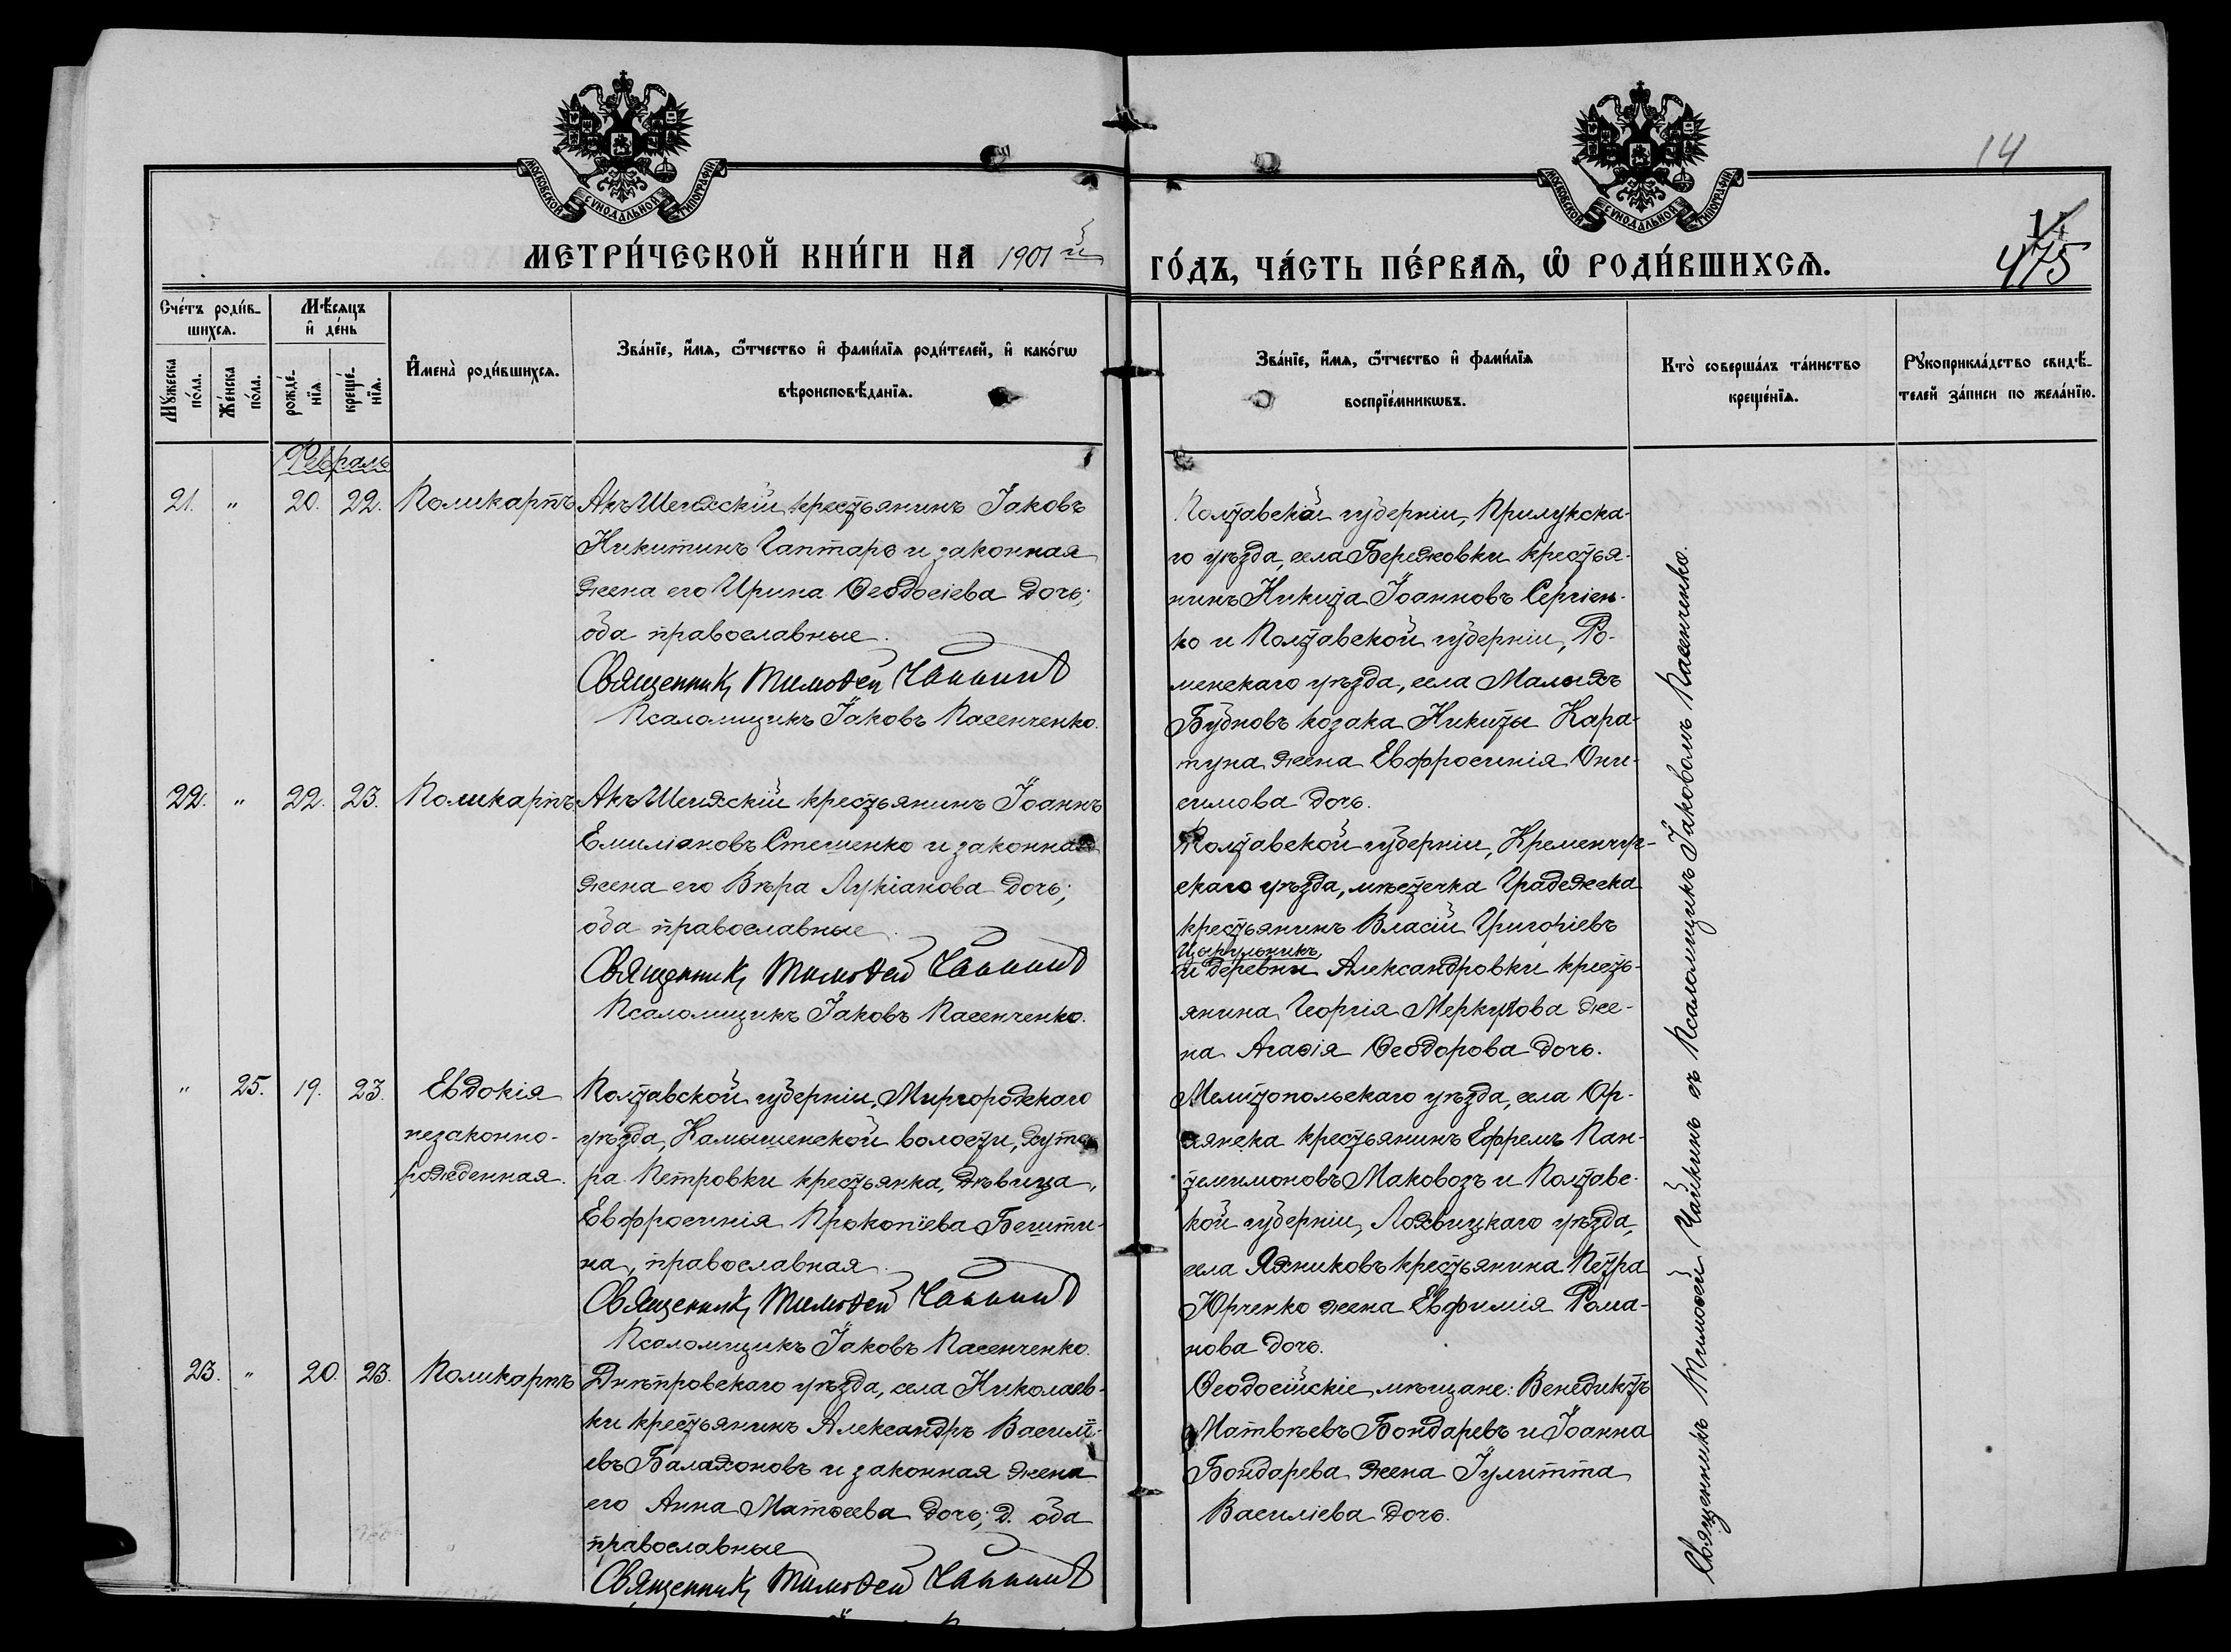 14
МОСКОВСКОЙ СѴНОДАЛЬНОЙ ТИПОГРАФІИ
МОСКОВСКОЙ СѴНОДАЛЬНОЙ ТИПОГРАФІИ
МЕТРИ́ЧЕСКОЙ КНИ́ГИ НА 1901 й
ГО́ДЪ, ЧА́СТЬ ПЕ́РВАѦ, Ѡ РОДИ́ВШИХСѦ.
475
Сче́тъ роди́в-
шихсѧ.
Мꙋ́жеска
по́ла.
Же́нска
по́ла.
Мѣ́сѧцъ
и҆ де́нь
рожде́-
нїѧ
креще́-
нїѧ.
И҆мена̀ роди́вшихсѧ.
Зва́нїе, и҆́мѧ, ѻ҆́тчество и҆ фами́лїѧ роди́телей, и҆ како́гѡ
вѣроисповѣ́данїѧ.
Зва́нїе, и҆́мѧ, ѻ҆́тчество и҆ фами́лїѧ
воспрїе́мникѡвъ.
Кто̀ соверша́лъ та́инство
креще́нїѧ.
Рꙋкоприкла́дство свидѣ́-
телей за́писи по жела́нїю.
Февраль
21. " 20. 22. Поликарпъ
Акъ Шеихскій крестьянинъ Іаковъ
Никитинъ Гаптарь и законная
жена его Ирина Ѳеодосіева дочь;
оба православные.
Священникъ Тимоѳей Чайкинъ
Псаломщикъ Іаковъ Пасенченко.
Полтавской губерніи, Прилукска-
го уѣзда, села Бережовки крестья-
нинъ Никита Іоанновъ Сергіен-
ко и Полтавской губерніи, Ро-
менскаго уѣзда, села Малыхъ
Будковъ козака Никиты Кара-
пуна жена Евфросинія Они-
симова дочь.
22. " 22. 23. Поликарпъ
Акъ Шеихскій крестьянинъ Іоаннъ
Емиліановъ Стешенко и законная
жена его Вѣра Лукіанова дочь;
оба православные.
Священникъ Тимоѳей Чайкинъ
Псаломщикъ Іаковъ Пасенченко.
Полтавской губерніи, Кременчуг-
скаго уѣзда, мѣстечка Градежска
крестьянинъ Власій Григоріевъ
Цырульникъ
и деревни Александровки кресть-
янина Георгія Меркулова же-
на Агаѳія Ѳеодорова дочь.
" 25. 19. 23. Евдокія
незаконно-
рожденная.
Полтавской губерніи, Миргородскаго
уѣзда, Камышенской волости, хуто-
ра Петровки крестьянка, дѣвица,
Евфросинія Прокопіева Бешти-
на, православная.
Священникъ Тимоѳей Чайкинъ
Псаломщикъ Іаковъ Пасенченко.
Мелитопольскаго уѣзда, села Ор-
лянска крестьянинъ Ефремъ Пан-
телимоновъ Маковозъ и Полтавс-
кой губерніи, Лохвицкаго уѣзда,
села Яхниковъ крестьянина Петра
Юрченко жена Евфимія Рома-
нова дочь.
23. " 20. 23. Поликарпъ
Днѣпровскаго уѣзда, села Николаев-
ки крестьянинъ Александръ Василі-
евъ Балахоновъ и законная жена
его Анна Матѳеева дочь; д. оба
православные
Священникъ Тимоѳей Чайкинъ
Ѳеодосійскіе мѣщане: Венедиктъ
Матвѣевъ Бондаревъ и Іоанна
Бондарева жена Іулитта
Василіева дочь.
Священникъ Тимоѳей Чайкинъ съ Псаломщикъ Іаковомъ Пасенченко.